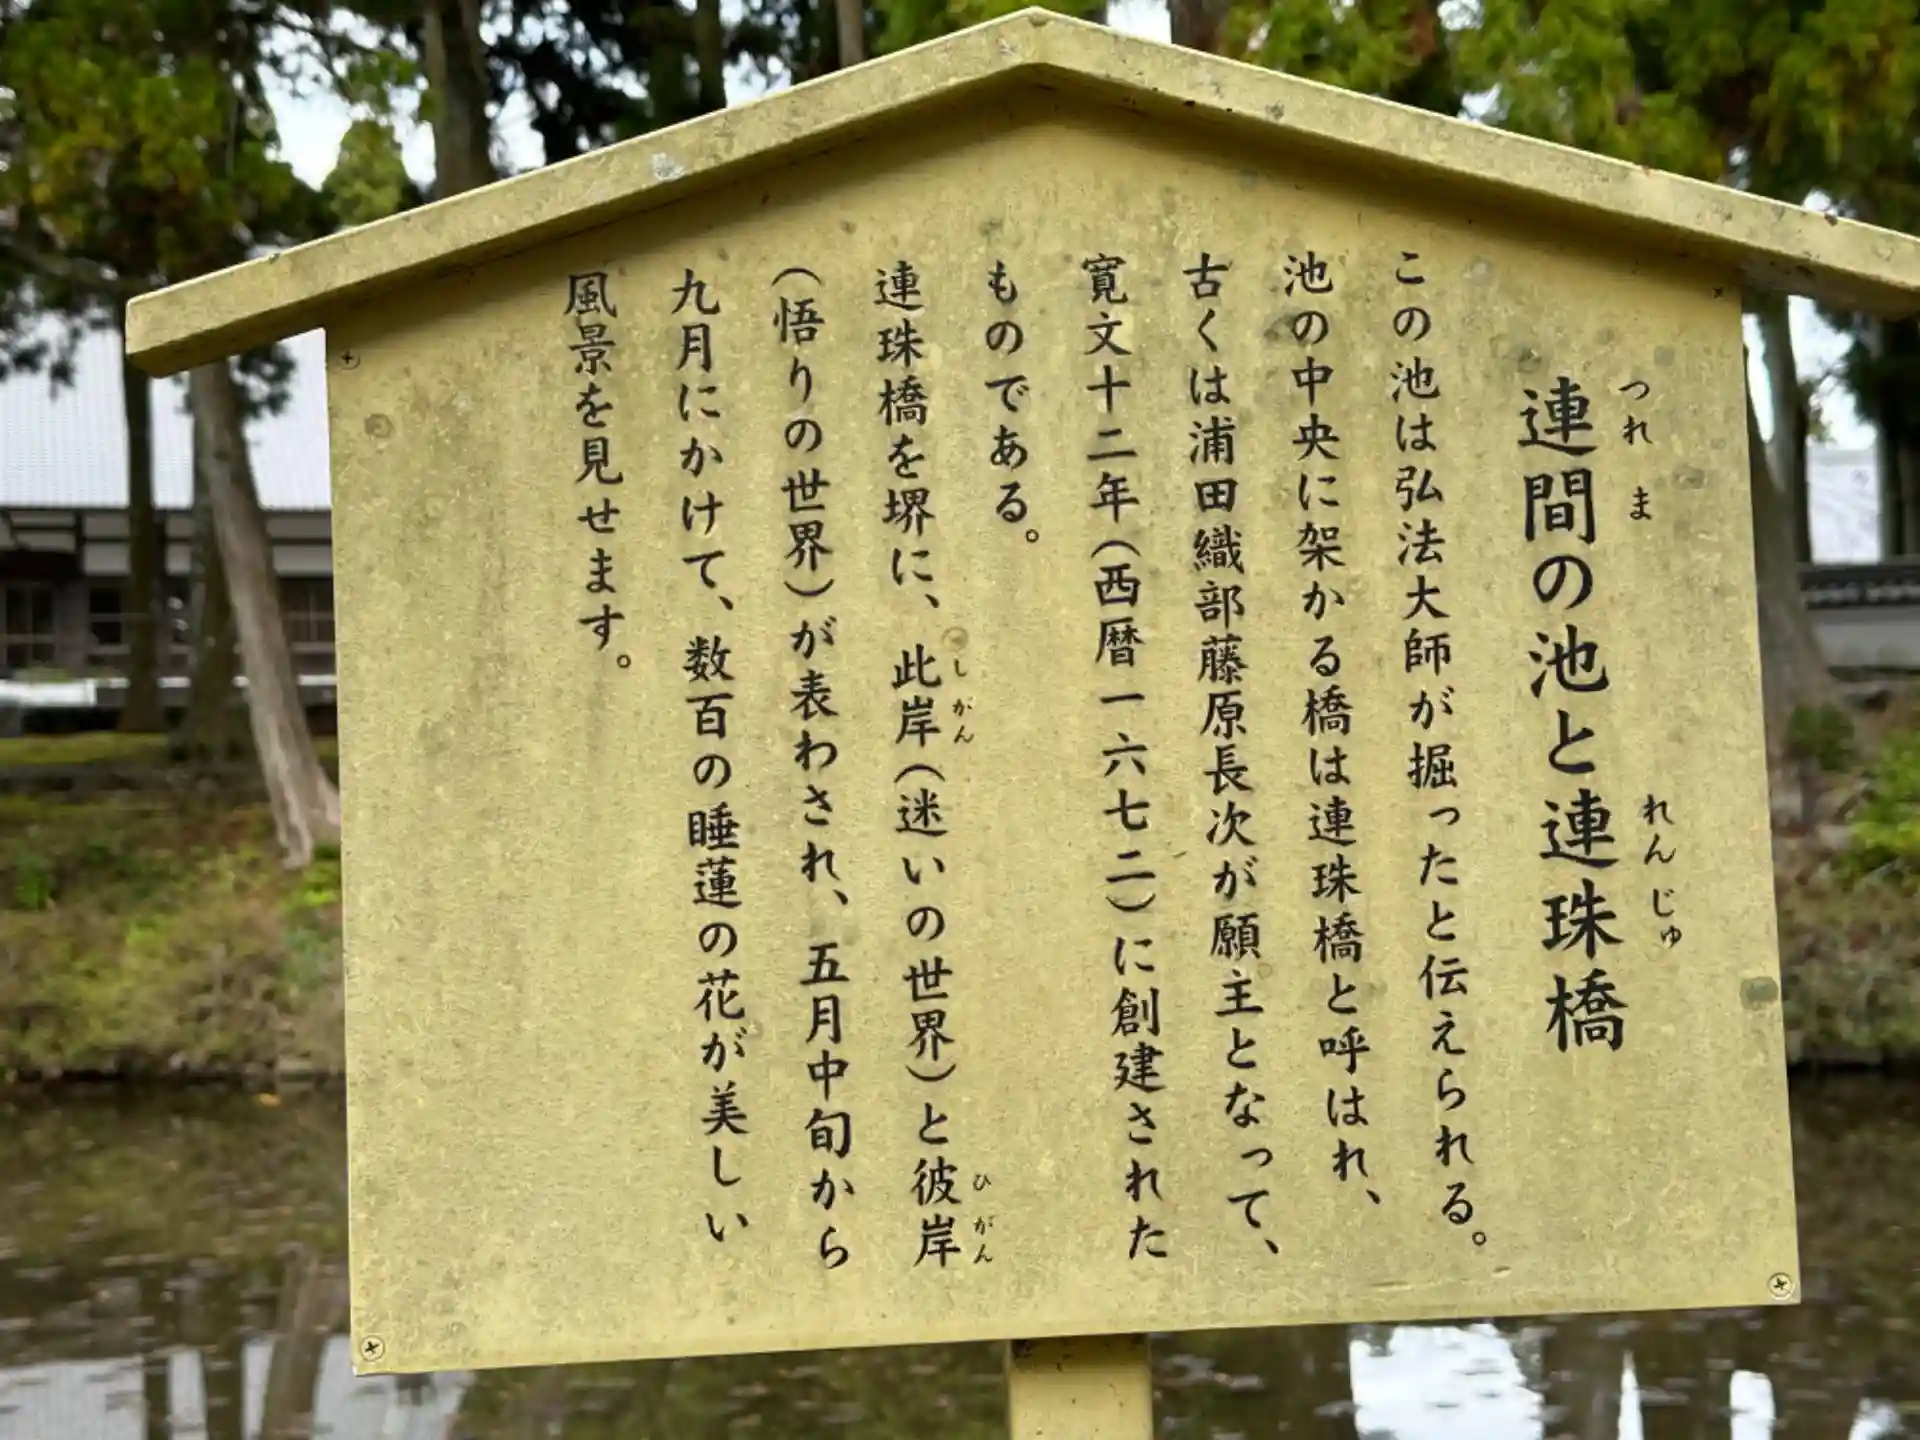 連間の池と連珠橋
つれ ま
れんじゅ
この池は弘法大師が掘ったと伝えられる。
池の中央に架かる橋は連珠橋と呼はれ、
古くは浦田織部藤原長次が願主となって、
寛文十二年(西暦一六七二)に創建された
ものである。
連珠橋を堺に、此岸(迷いの世界)と彼岸
しがん
ひがん
(悟りの世界)が表わされ、五月中旬から
九月にかけて、数百の睡蓮の花が美しい
風景を見せます。